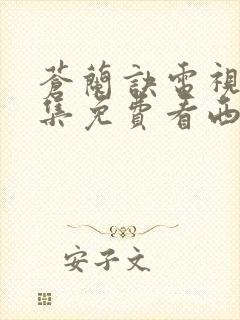 蒼蘭訣電視
集免費看西
安子文